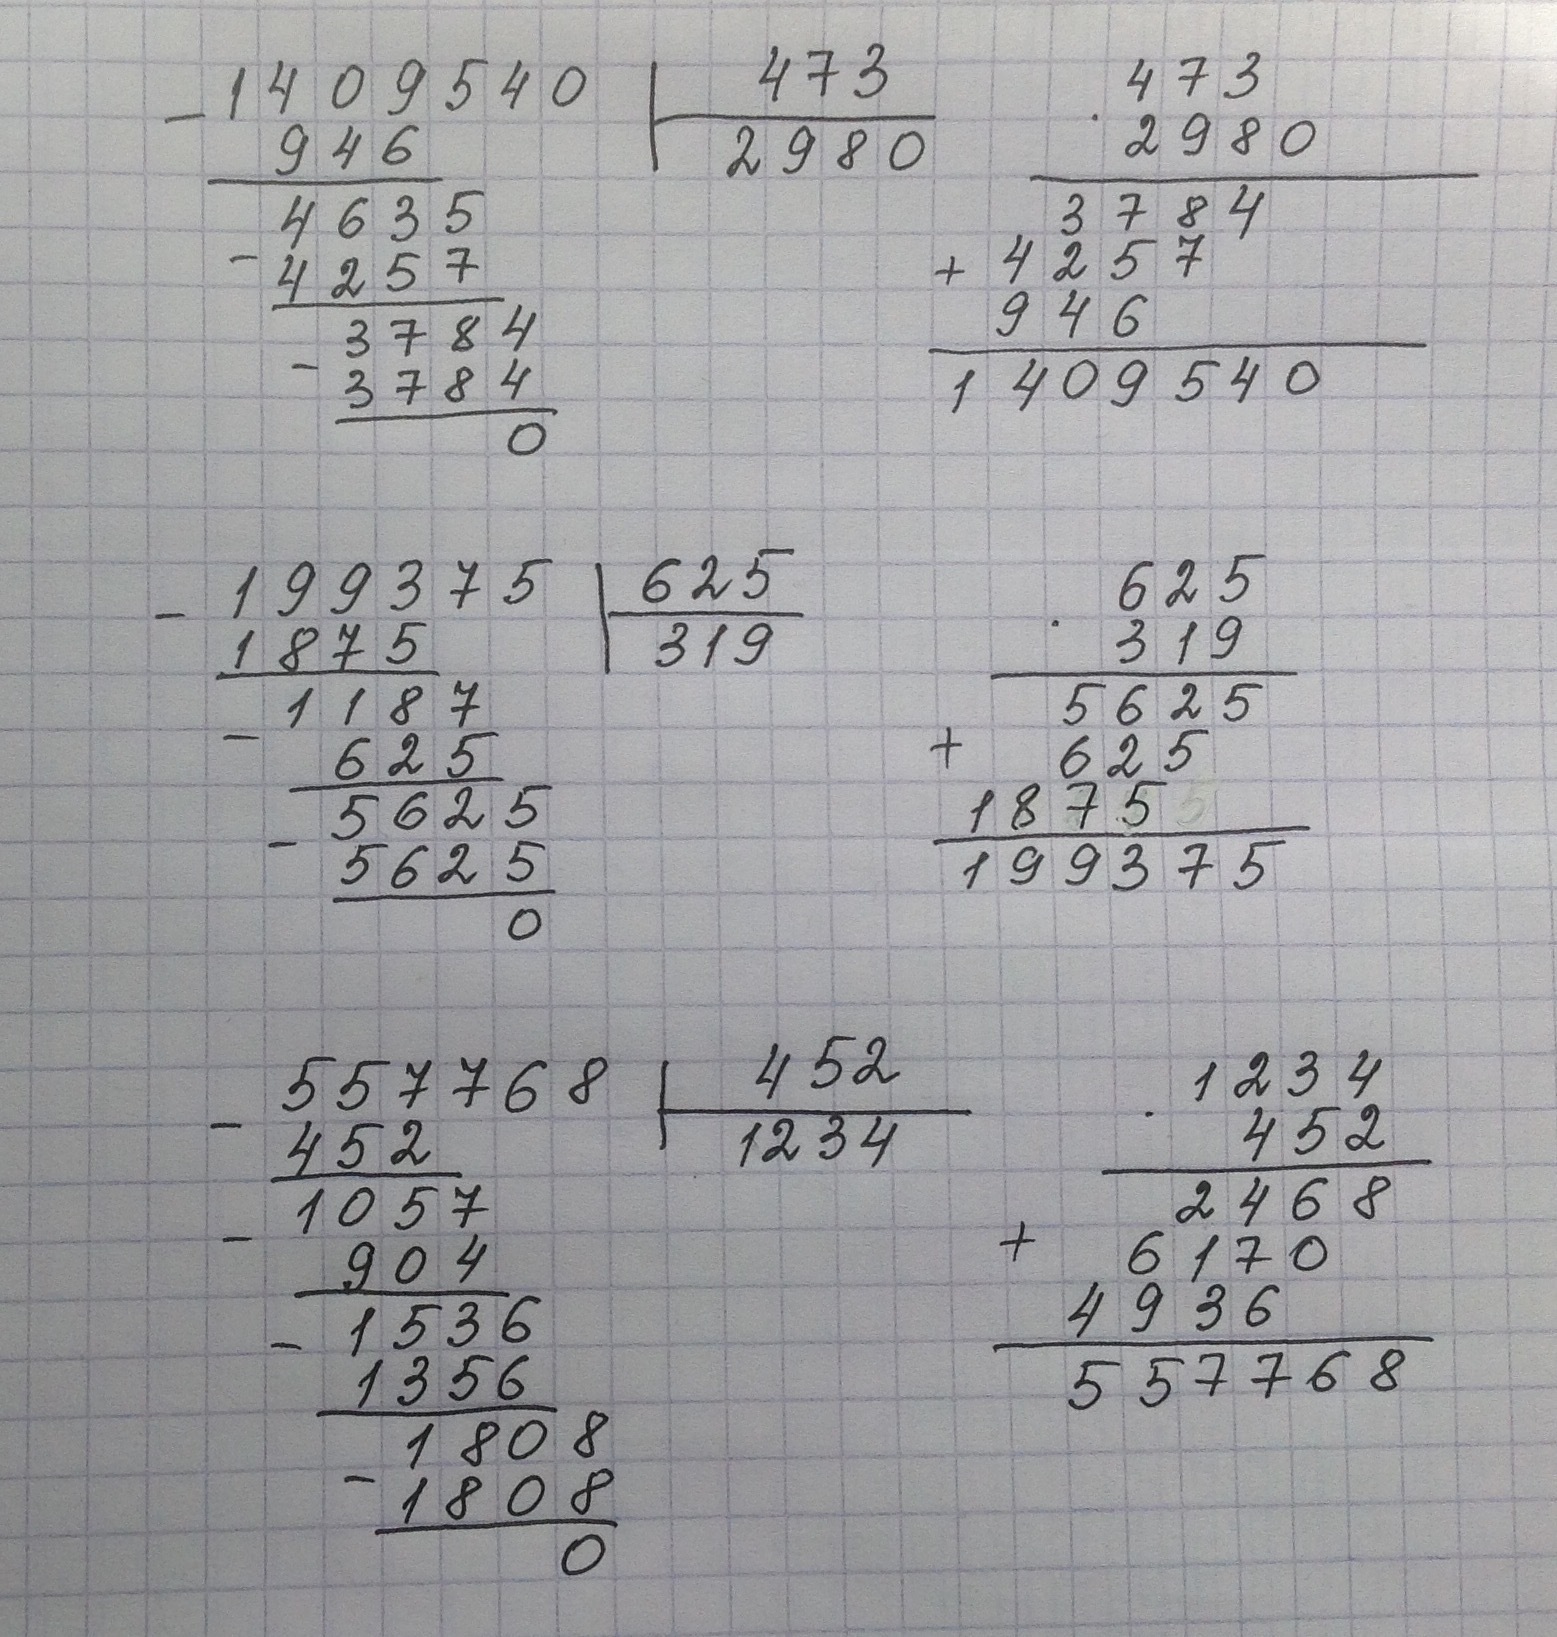 - 1409540 | 473
946 2980
4635
- 4257
3784
- 3784
0
473
· 2980
3784
+ 4257
946
1409540
- 199375 | 625
1875 319
1187
- 625
5625
- 5625
0
625
· 319
5625
+ 625
1875
199375
- 557768 | 452
452 1234
1057
- 904
1536
- 1356
1808
- 1808
0
1234
· 452
2468
+ 6170
4936
557768